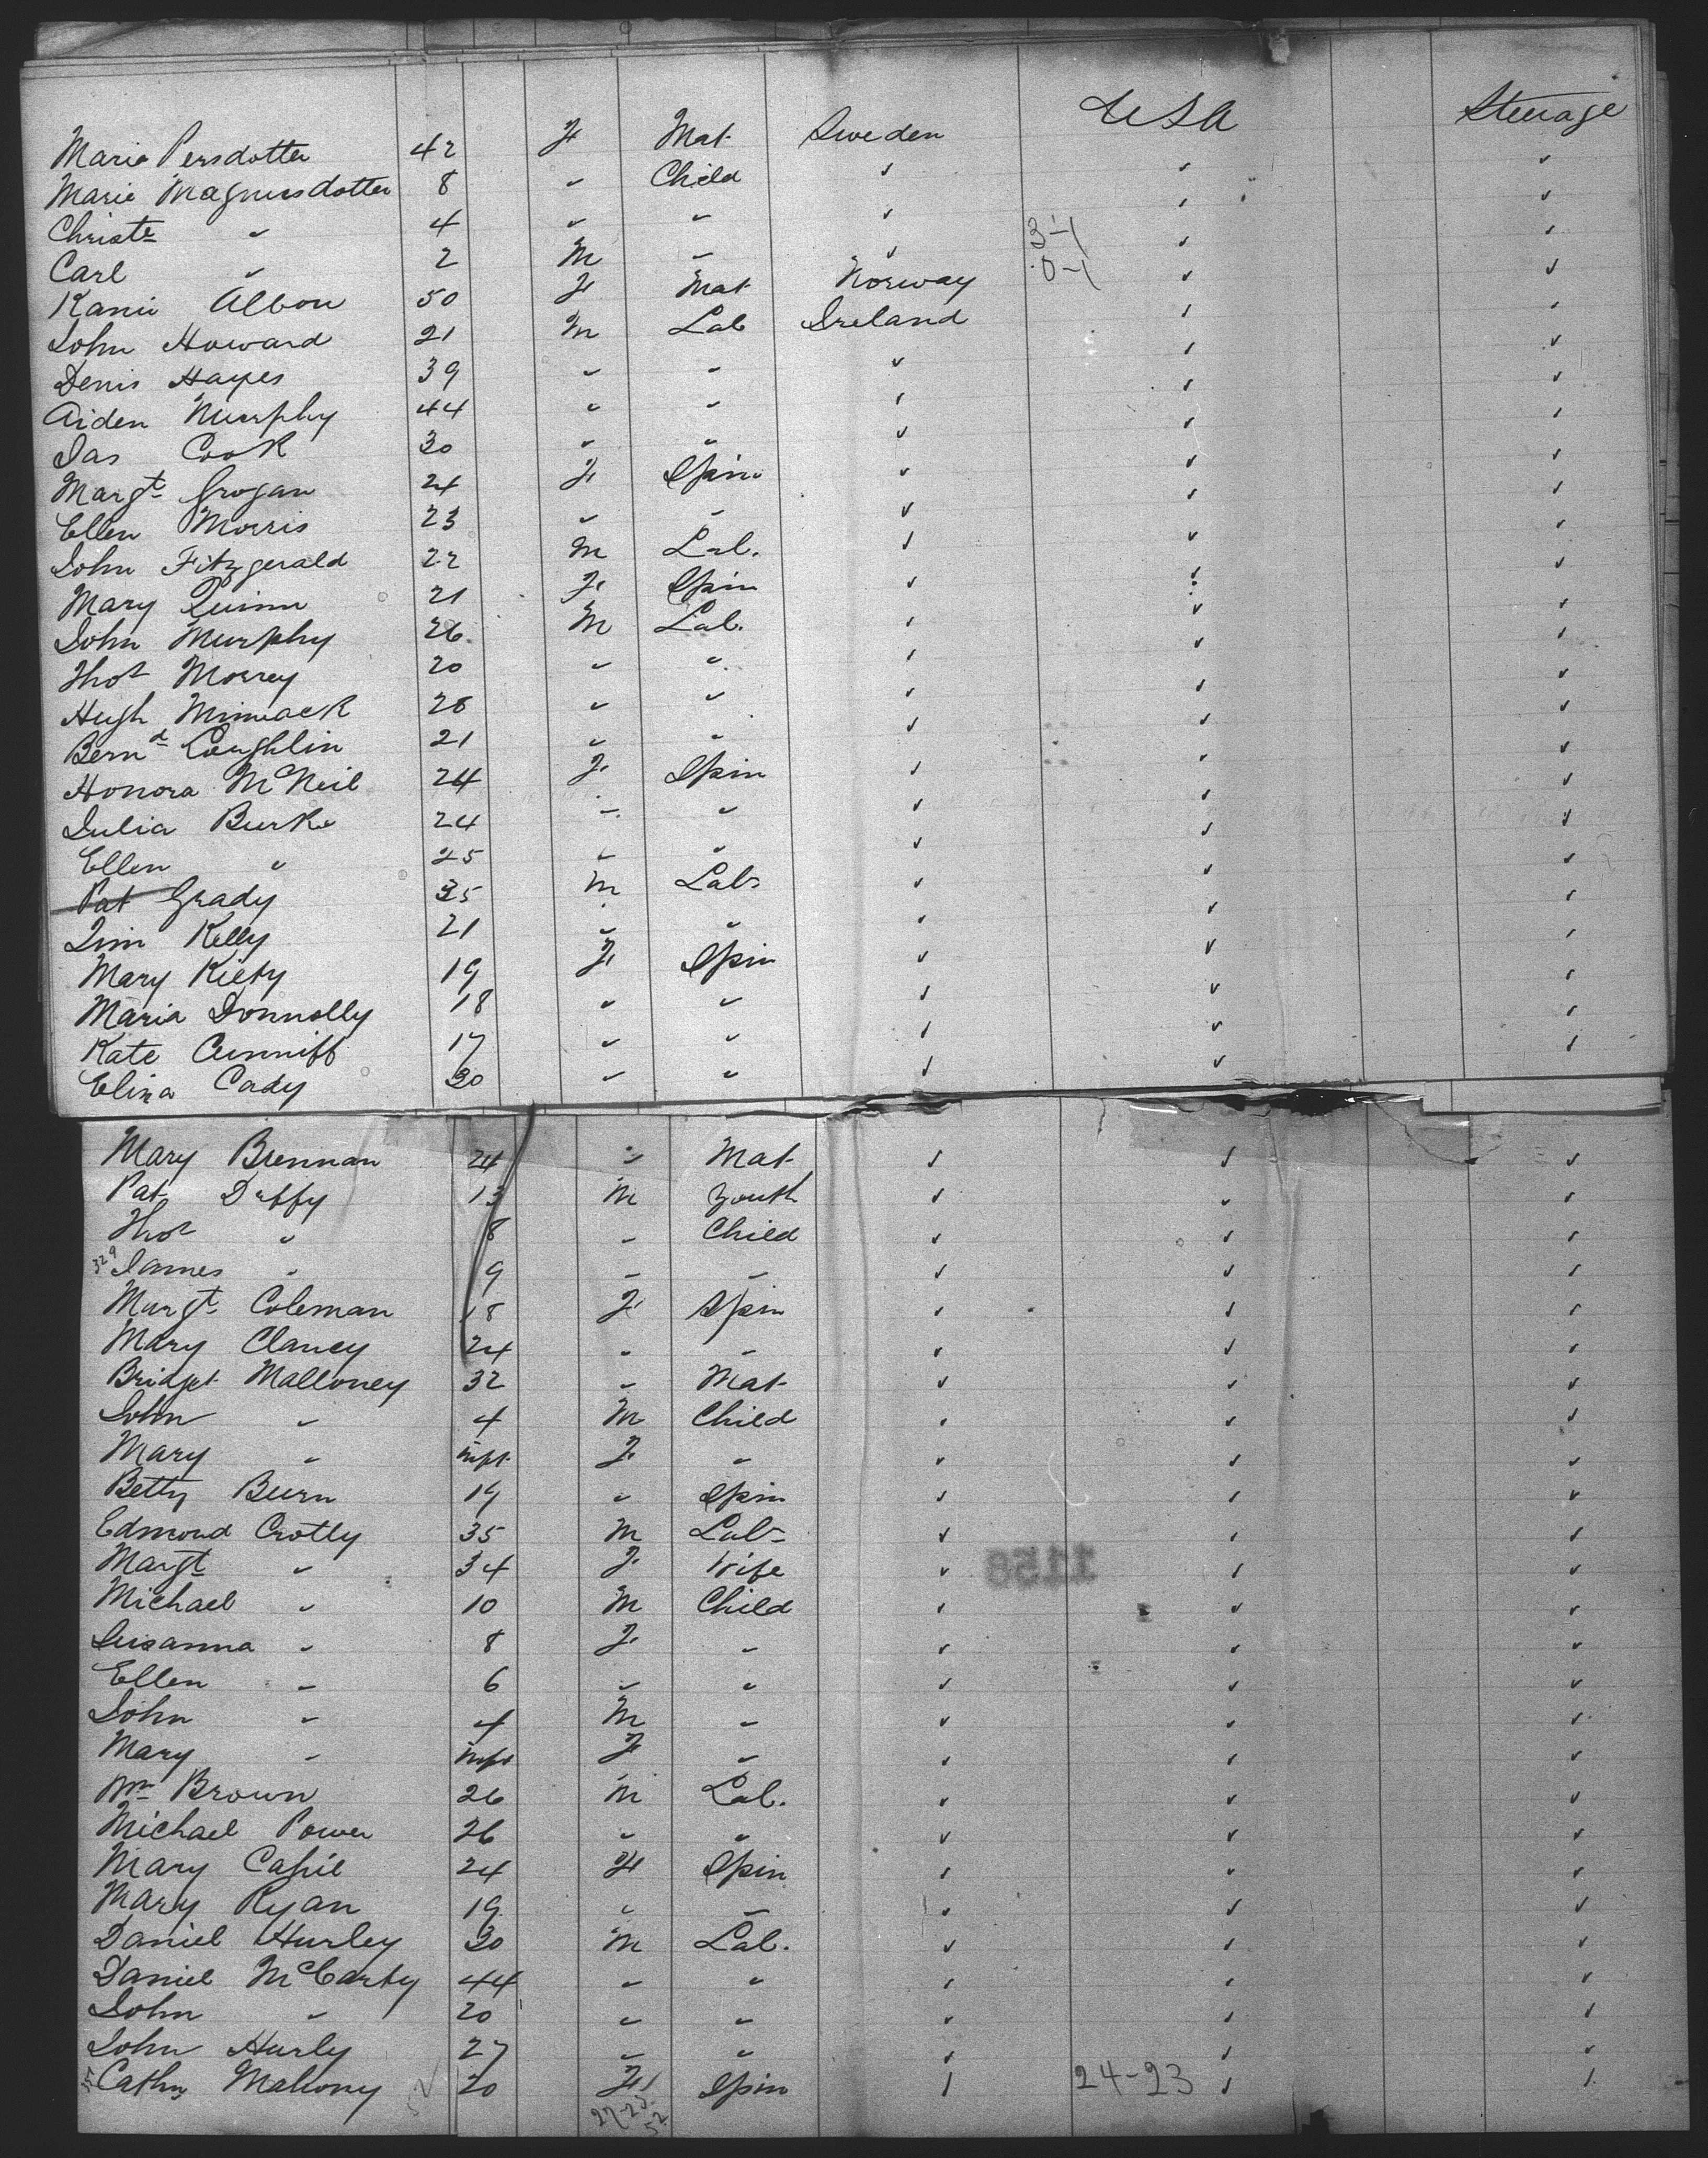 Maria Persdotter 42 F Mat Sweden USA Steerage
Marie Magnusdotter 8 " Child " " "
Christe " 4 " " " " "
Carl " 2 M " " 3-1 " "
Albou 50 F Mat Norway 0-1 " "
John Howard 21 M Lab Ireland " "
Denis Hayes 39 " " " " "
Aiden Murphy 44 " " " " "
Jas Cook 30 " " " " "
Margt Grogan 24 F Spin " " "
Ellen Morris 23 " " " " "
John Fitzgerald 22 M Lab. " " "
Mary Quinn 21 F Spin " " "
John Murphy 26 M Lab. " " "
Thos Morrey 20 " " " " "
Hugh 28 " " " " "
Bernd Coughlin 21 " " " " "
Honora McNeil 24 F Spin " " "
Julia Burke 24 " " " " "
Ellen " 25 " " " " "
Pat Grady 35 M Labr " " "
Jim Kelly 21 " " " " "
Mary Kiely 19 F Spin " " "
Maria Donnolly 18 " " " " "
Kate Cunniff 17 " " " " "
Eliza Cady 30 " " " " "
Mary Brennan 24 " Mat " " "
Pat Duffy 13 M Youth " " "
Thos " 8 " Child " " "
329 James " 9 " " " " "
Margt Coleman 18 F Spin " " "
Mary Clancy 24 " " " " "
Bridget Malloney 32 " Mat " " "
John " 4 M Child " " "
Mary " inft F " " " "
Betty Burn 19 " Spin " " "
Edmond Crotty 35 M Labr " " "
Margt " 34 F Wife " " "
1158
Michael " 10 M Child " " "
Susanna " 8 F " " " "
Ellen " 6 " " " " "
John " 4 M " " " "
Mary " inft F " " " "
Wm Brown 26 M Lab. " " "
Michael Power 26 " " " " "
Mary Cahil 24 F Spin " " "
Mary Ryan 19 " " " " "
Daniel Hurley 30 M Lab. " " "
Daniel McCarty 44 " " " " "
John " 20 " " " " "
John Hurly 27 " " " " "
Cathn Mahony 20 F Spin " 24-23 " "
27-25
52